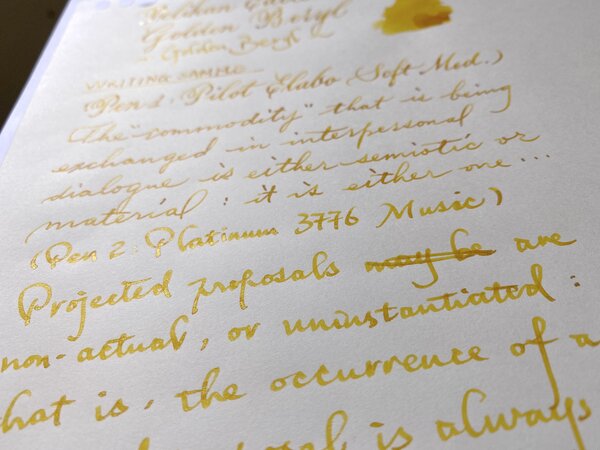 Golden Beryl
Golden Beryl
WRITING SAMPLE
(Pen 1: Pilot Elabo Soft Med.)
The "commodity" that is being
exchanged in interpersonal
dialogue is either semiotic or
material : it is either one...
(Pen 2: Platinum 3776 Music)
Projected proposals may be are
non-actual, or uninstantiated :
that is, the occurrence of a
is always